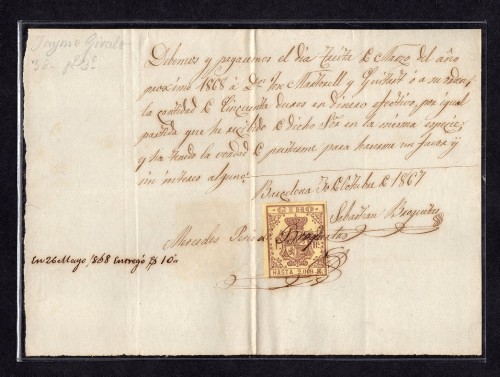 Jayme Giralt
Debemos y pagaremos el dia treita de Marzo del año
proximo 1868 á Dn Jose Martorell y Guitart ó a su orden
la cantidad de Cincuenta duros en dinero efectivo, por igual
partida que he recibido de dicho Sor en la misma especie;
y siendo la verdad de prestarme para hacerme un favor y
sin interes alguno.
Barcelona 30 Octubre de 1867
Sebastian Braguetes
Mercedes de Braguetas
HASTA
En 26 Mayo 1868 Entregó 10